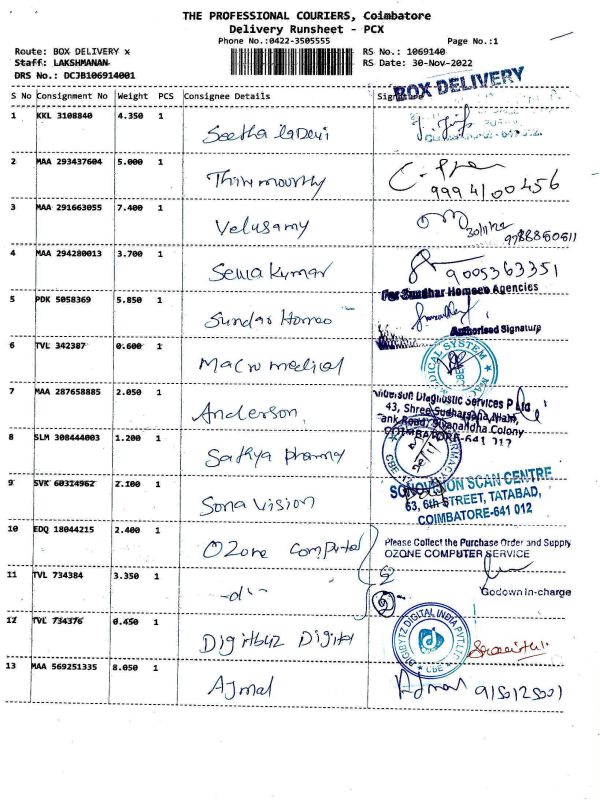 THE PROFESSIONAL COURIERS, Coimbatore
Delivery Runsheet - PCX
Phone No.:0422-3505555 Page No.:1
Route: BOX DELIVERY x RS No.: 1069140
Staff: LAKSHMANAN RS Date: 30-Nov-2022
DRS No.: DCJB106914001
BOX DELIVERY
S No Consignment No Weight PCS Consignee Details
1 KKL 3108840 4.350 1
2 MAA 293437604 5.000 1
9994100456
3 MAA 291663055 7.400 1 Velusamy
4 MAA 294280013 3.700 1 Selva Kumar 9005363351
For Sundhar Homoeo Agencies
5 PDK 5058369 5.850 1 Sundar Homeo
Authorised Signature
6 TVL 342387 0.600 1 Macro medical
7 MAA 287658885 2.050 1 Anderson
Diagnostic Services P Ltd
43, Shree Sudharsana
Road, Sivanandha Colony
COIMBATORE-641 012
8 SLM 308444003 1.200 1 Sathya
9 SVK 60314962 2.100 1 Sona Vision
SONOVISION SCAN CENTRE
63, 6th STREET, TATABAD,
COIMBATORE-641 012
10 EDQ 18044215 2.400 1 Ozone
Please Collect the Purchase Order and Supply
OZONE COMPUTER SERVICE
11 TVL 734384 3.350 1 -do-
Godown in-charge
12 TVL 734376 0.450 1
DIGBYTZ DIGITAL INDIA PVT LTD
CBE
13 MAA 569251335 8.050 1 Ajmal
Ajmal